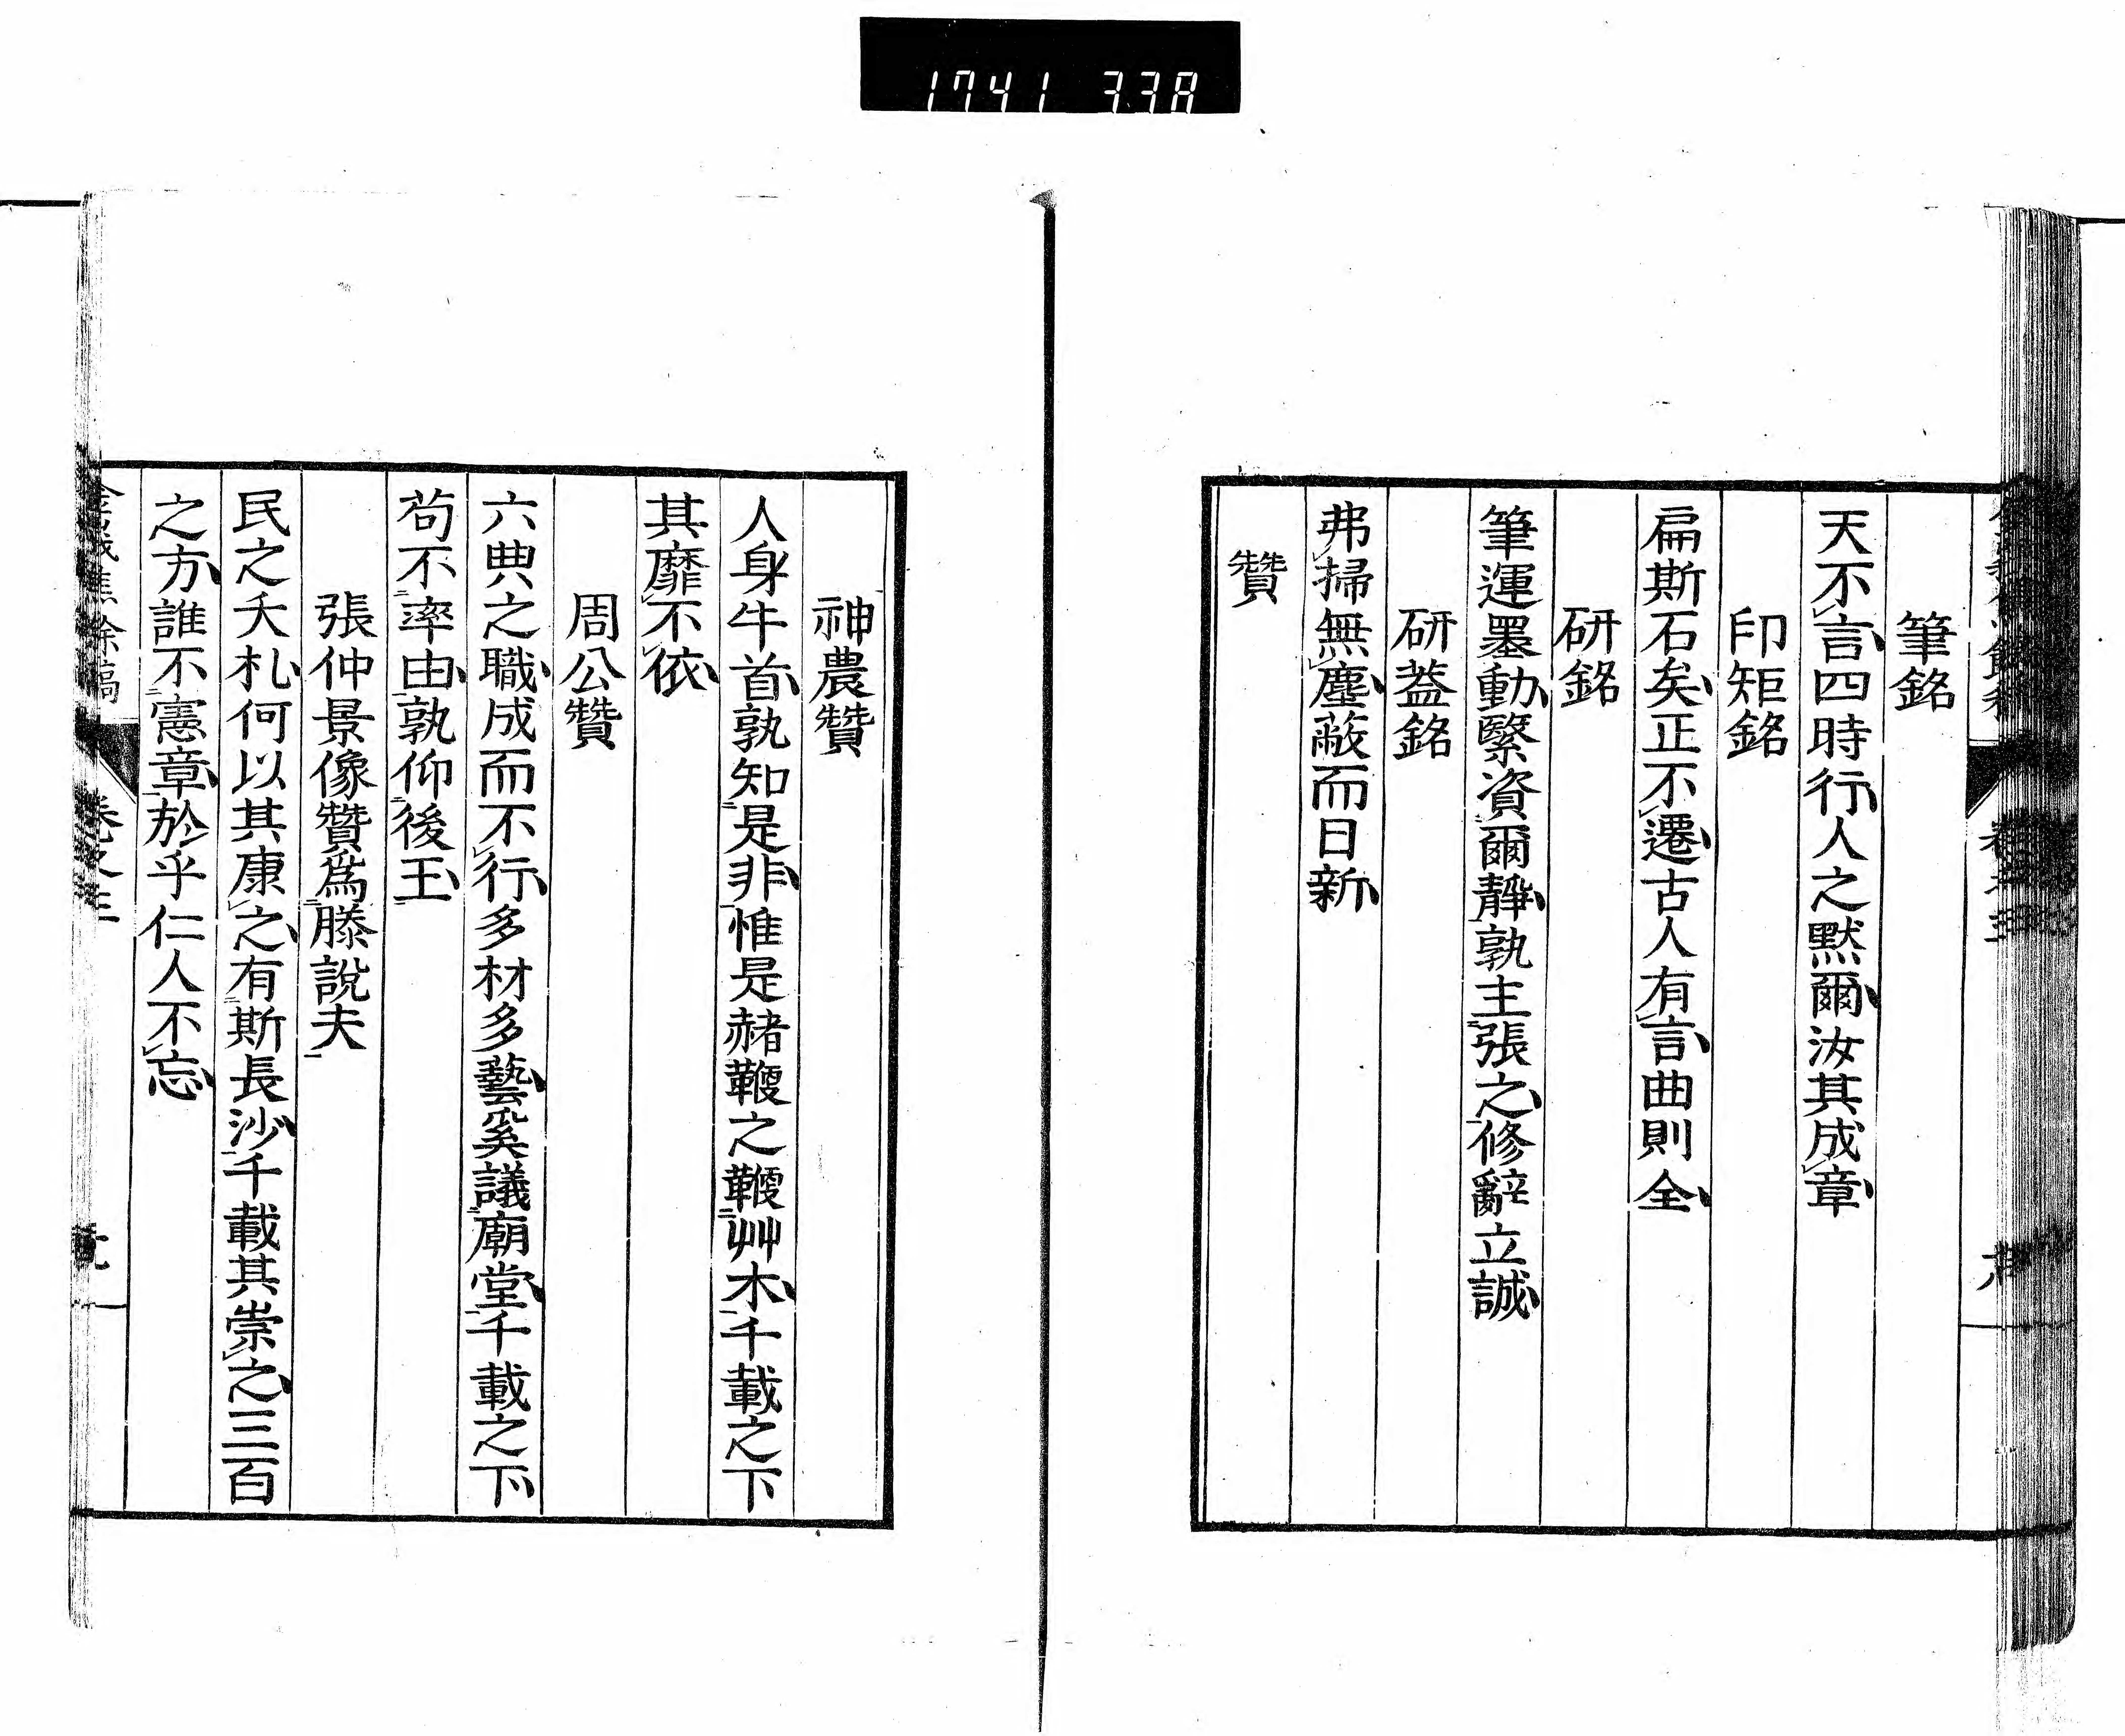 1741 338
筆銘
天不言四時行人之默爾汝其成章
印矩銘
扁斯石矣正不遷古人有言曲則全
研銘
筆運墨動繄資爾靜孰主張之修辭立誠
研葢銘
弗掃無塵蔽而日新
贊
神農贊
人身牛首孰知是非惟是赭鞭之鞭艸木千載之下
其靡不依
周公贊
六典之職成而不行多材多藝奚議廟堂千載之下
苟不率由孰仰後王
張仲景像贊爲滕說夫
民之夭札何以其康之有斯長沙千載其崇之三百
之方誰不憲章於乎仁人不忘
焦餘稿